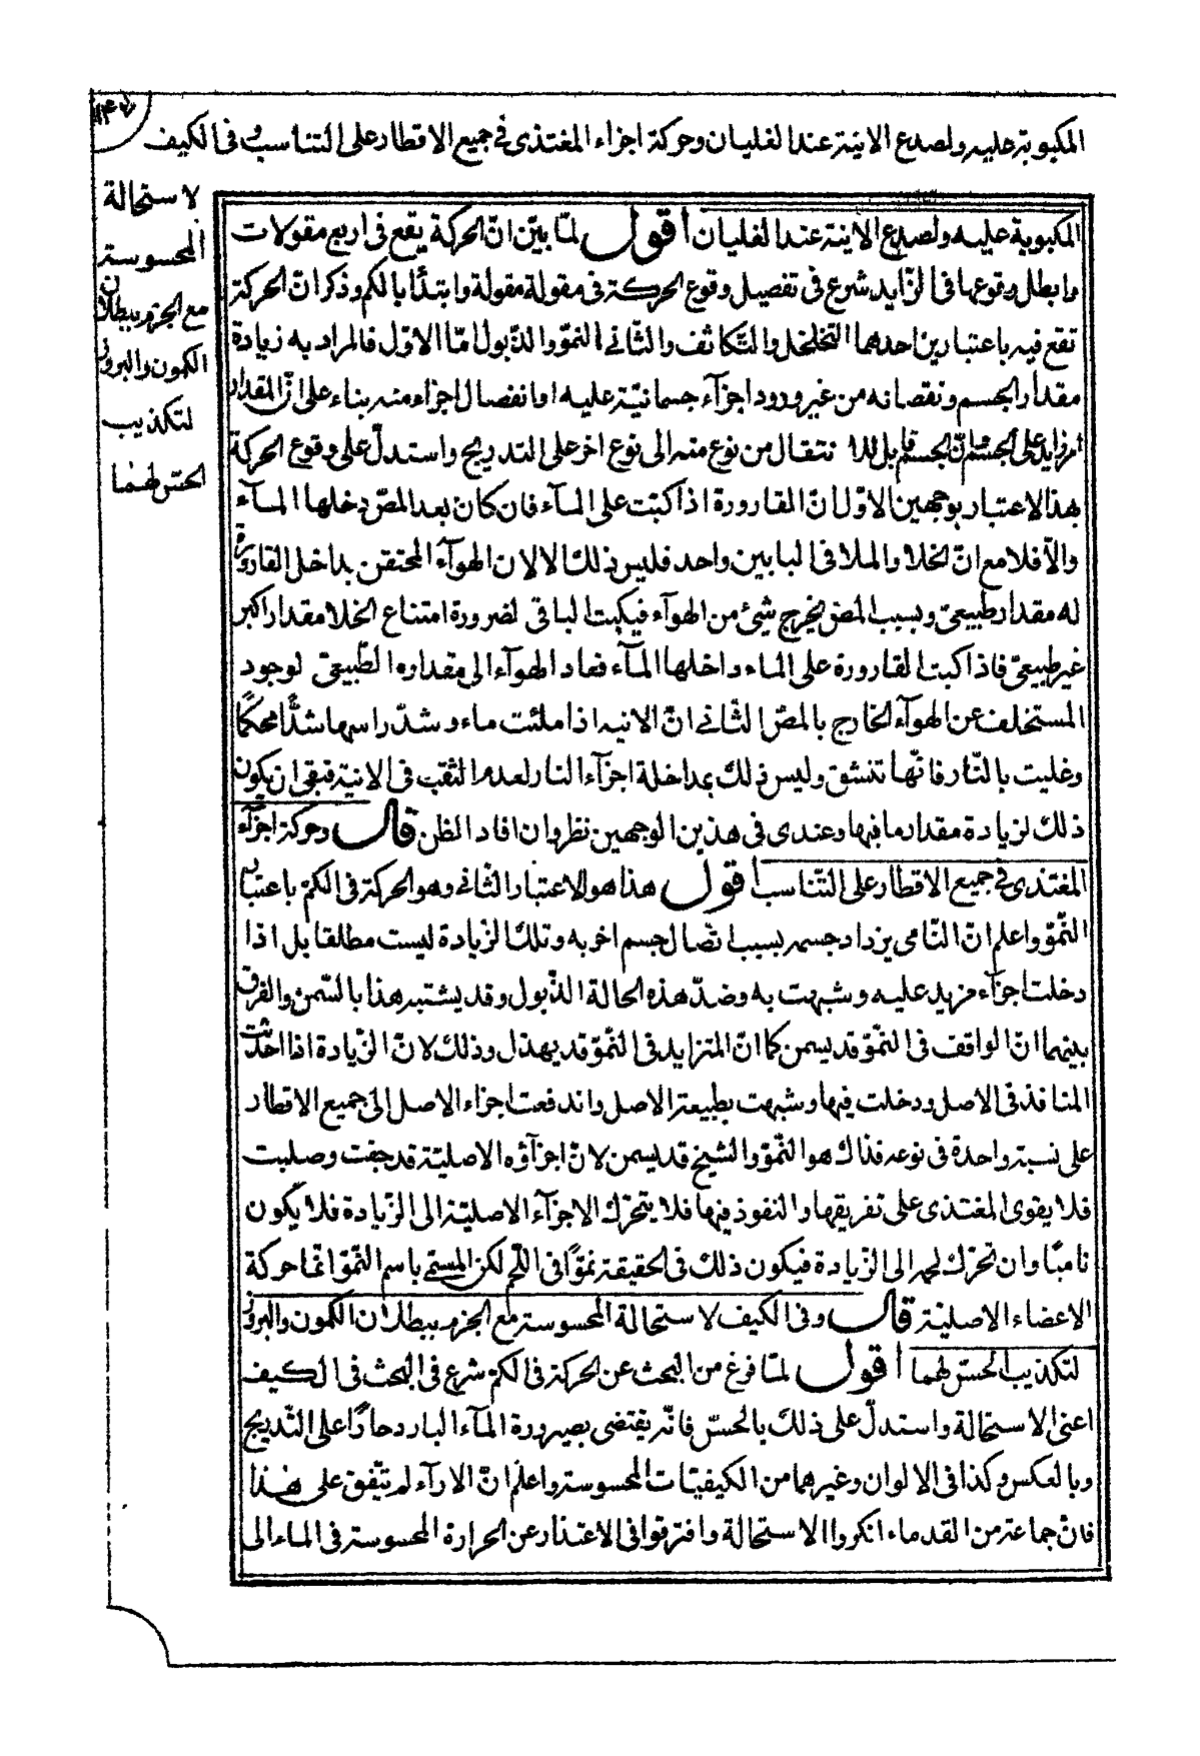 المكبوبة عليه ولصدع الانية عند الغليان وحركة اجزاء المغتذى فى جميع الاقطار على التناسب وفى الكيف
لاستحالة
المحسوسة
مع الجزم ببطلان
الكمون والبروز
لتكذيب
الحس لهما
المكبوبة عليه ولصدع الانية عند الغليان اقول لمّا بيّن انّ الحركة يقع فى اربع مقولات
وابطل وقوعها فى الزايد شرع فى تفصيل وقوع الحركة فى مقولة مقولة وابتدأ بالكم وذكر انّ الحركة
تقع فيه باعتبارين احدهما التخلخل والتّكاثف والثّانى النموّ والذّبول امّا الاوّل فالمراد به زيادة
مقدار الجسم ونقصانه من غير ورود اجزآء جسمانيّة عليه او انفصال اجزاء منه بناء على انّ المقدار
امر زايد على الجسم وانّ الجسم قابل للانتقال من نوع منه الى نوع اخر على التدريج واستدلّ على وقوع الحركة
بهذا الاعتبار بوجهين الاوّل انّ القارورة اذا كبّت على المآء فان كان بعد المصّ دخلها المآء
والّا فلا مع انّ الخلا والملا فى البابين واحد فليس ذلك الا لان الهوآء المحتقن بداخل القارورة
له مقدار طبيعىّ وبسبب المصّ يخرج شئ من الهوآء فيكتب الباقى لضرورة امتناع الخلا مقدارا اكبر
غير طبيعىّ فاذا كبت القارورة على الماء داخلها المآء فعاد الهوآء الى مقداره الطّبيعىّ لوجود
المستخلف عن الهوآء الخارج بالمصّ الثّانى انّ الانيه اذا ملئت ماء وشدّ راسها شدّا محكمًا
وغليت بالنّار فانّها تنشق وليس ذلك بمداخلة اجزآء النار لعدم الثقب فى الانية فبقى ان يكون
ذلك لزيادة مقدار ما فيها وعندى فى هذين الوجهين نظر وان افاد الظن قال وحركة اجزآء
المغتذى فى جميع الاقطار على التّناسب اقول هذا هو الاعتبار الثّانى وهو الحركة فى الكمّ باعتبار
النّموّ واعلم انّ النّامى يزداد جسمه بسبب اتّصال جسم اخر به وتلك الزّيادة ليست مطلقا بل اذا
دخلت اجزآء مزيد عليه وشبهت به وضدّ هذه الحالة الذّبول وقد يشتبه هذا بالسّمن والفرق
بينهما انّ الواقف فى النّموّ قد يسمن كما انّ المتزايد فى النّموّ قد يهذل وذلك لانّ الزّيادة اذا احدثت
المنافذ فى الاصل ودخلت فيها وشبهت بطبيعة الاصل واندفعت اجزاء الاصل الى جميع الاقطار
على نسبة واحدة فى نوعه فذاك هو النّموّ والشيخ قد يسمن لانّ اجزآؤه الاصليّة قد جفت وصلبت
فلا يقوى المغتذى على تفريقها والنفوذ فيها فلا يتحرّك الاجزآء الاصليّة الى الزّيادة فلا يكون
ناميّا وان تحرّك لحمه الى الزّيادة فيكون ذلك فى الحقيقة نموّا فى اللّحم لكن المسمّى باسم النّموّ انّما حركة
الاعضاء الاصليّة قال وفى الكيف لاستحالة المحسوسة مع الجزم ببطلان الكمون والبروز
لتكذيب الحسّ لهما اقول لمّا فرغ من البحث عن الحركة فى الكمّ شرع فى البحث فى الكيف
اعنى الاستحالة واستدلّ على ذلك بالحسّ فانّه يقتضى بصيرورة المآء البارد حارّا على التّدريج
وبالعكس وكذا فى الالوان وغيرهما من الكيفيّات المحسوسة واعلم انّ الارآء لم تتّفق على هذا
فانّ جماعة من القدماء انكروا الاستحالة وافترقوا فى الاعتذار عن الحرارة المحسوسة فى الماء الى